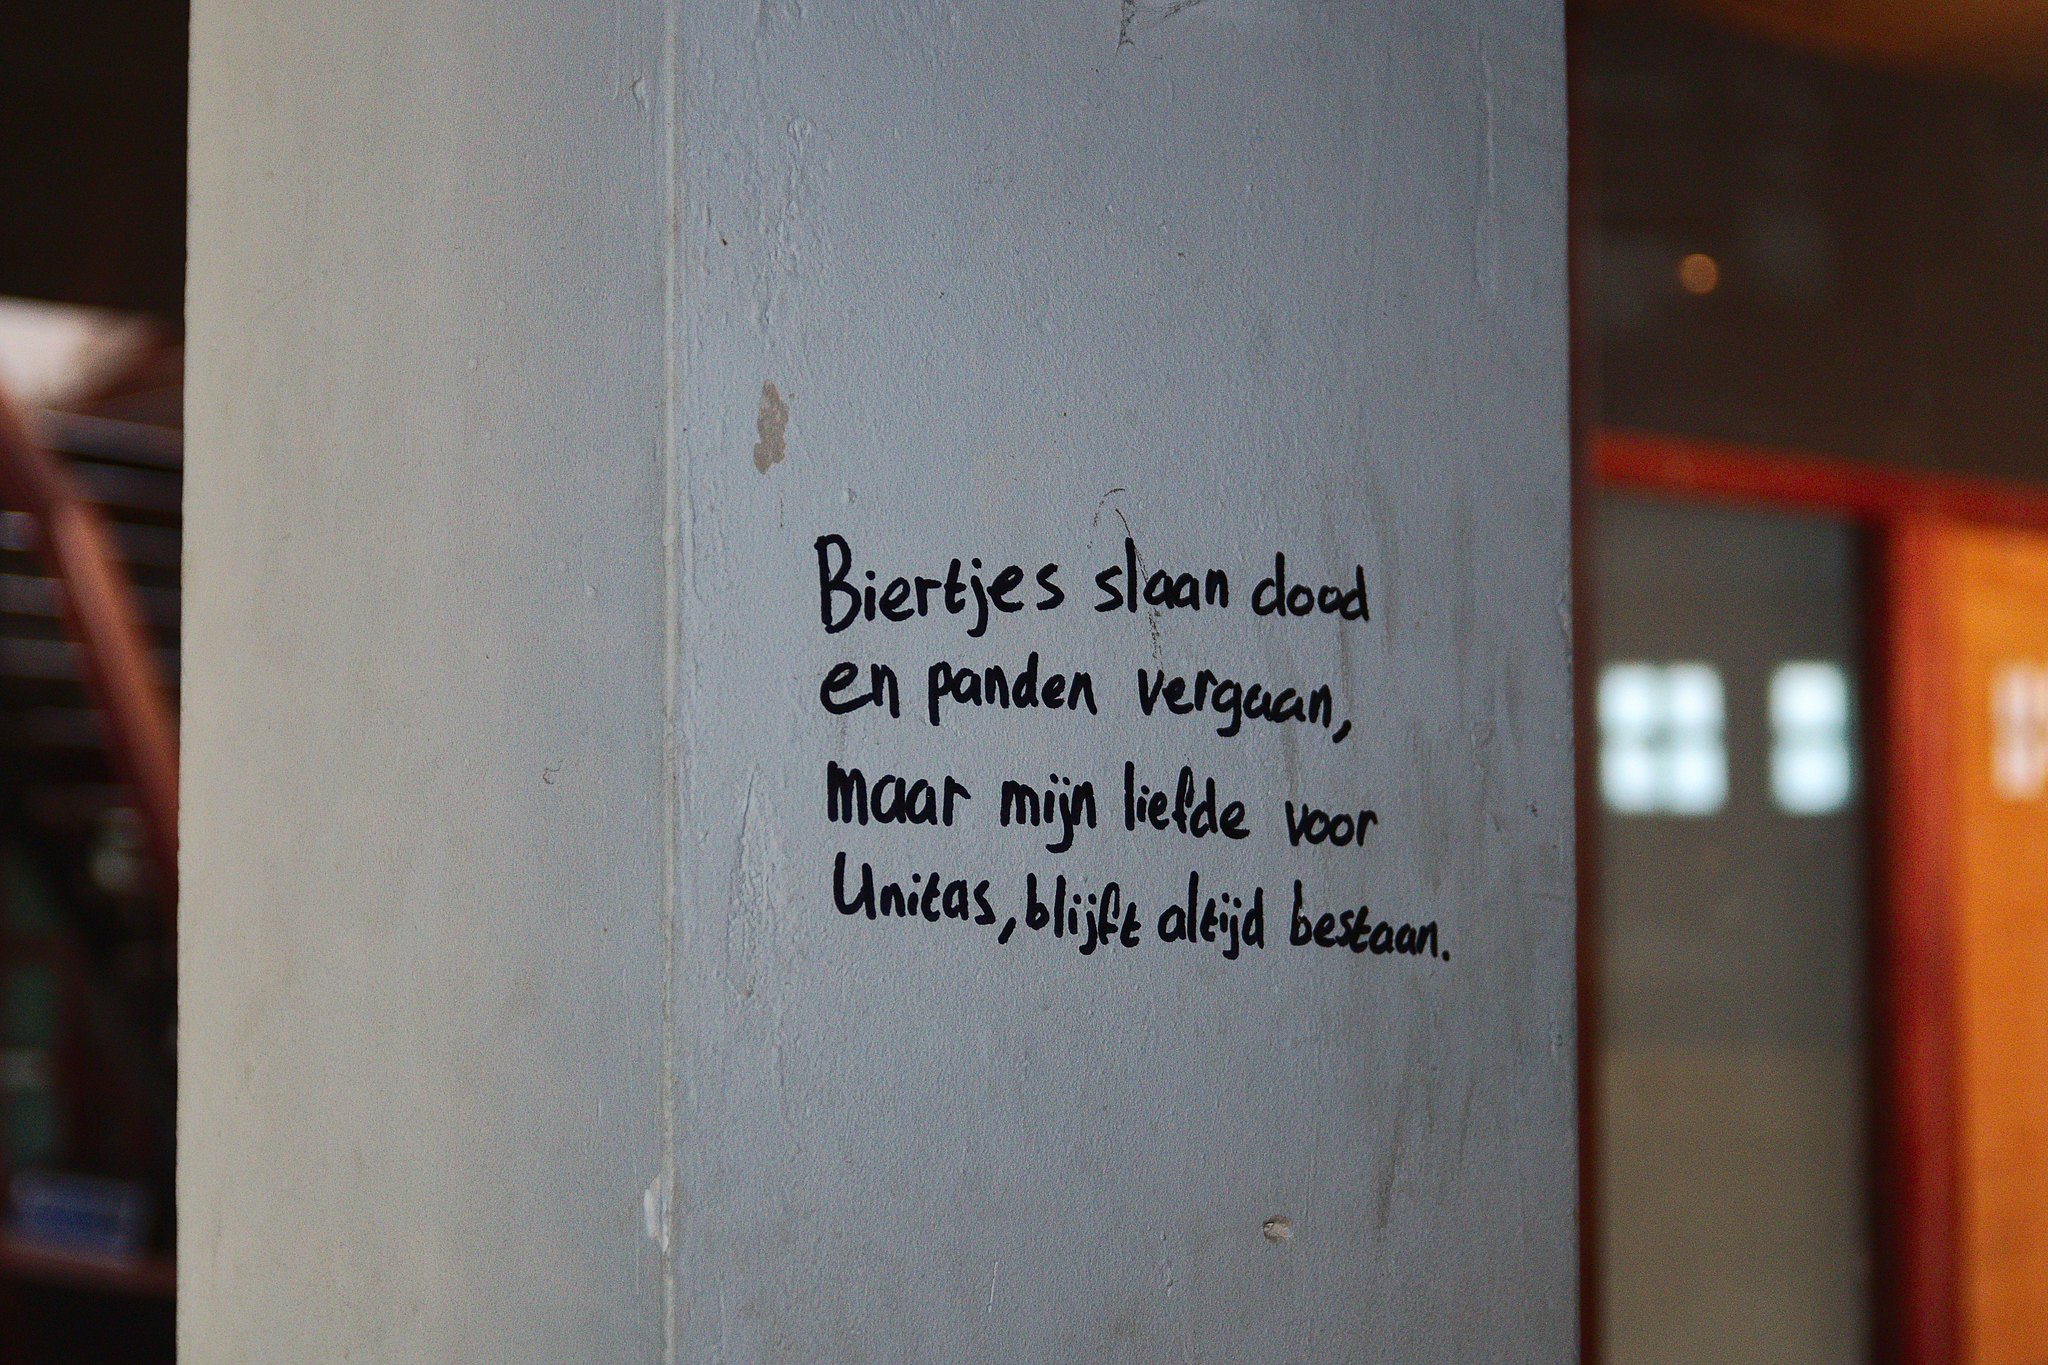 Biertjes slaan dood
en panden vergaan,
maar mijn liefde voor
Unitas, blijft altijd bestaan.